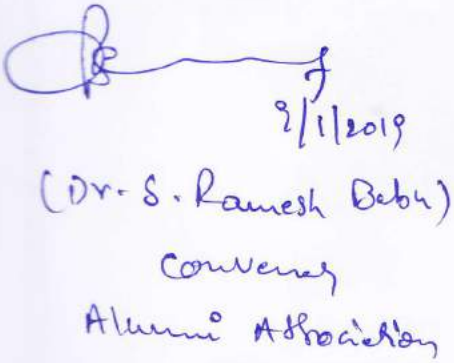 9/1/2019
(Dr. S. Ramesh Babu)
Convener
Alumni Association